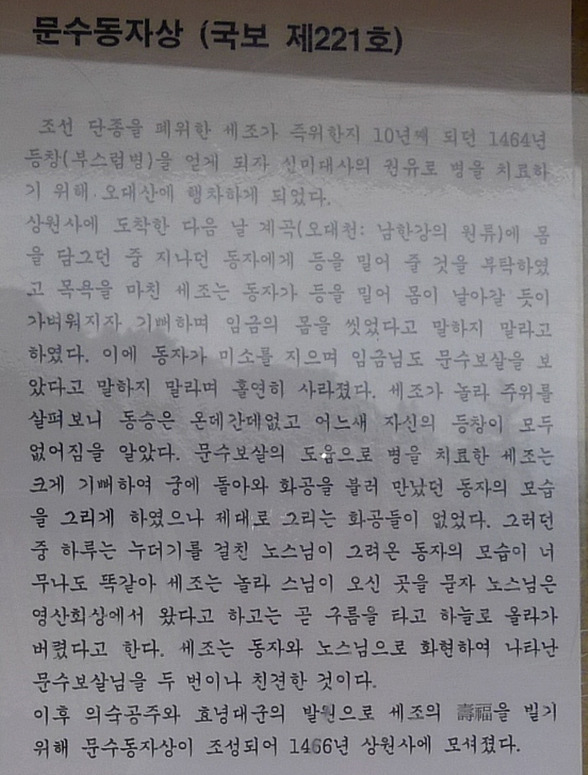 문수동자상 (국보 제221호)
조선 단종을 폐위한 세조가 즉위한지 10년째 되던 1464년
등창(부스럼병)을 얻게 되자 신미대사의 권유로 병을 치료하
기 위해 오대산에 행차하게 되었다.
상원사에 도착한 다음 날 계곡(오대천: 남한강의 원류)에 몸
을 담그던 중 지나던 동자에게 등을 밀어 줄 것을 부탁하였
고 목욕을 마친 세조는 동자가 등을 밀어 몸이 날아갈 듯이
가벼워지자 기뻐하며 임금의 몸을 씻었다고 말하지 말라고
하였다. 이에 동자가 미소를 지으며 임금님도 문수보살을 보
았다고 말하지 말라며 홀연히 사라졌다. 세조가 놀라 주위를
살펴보니 동승은 온데간데없고 어느새 자신의 등창이 모두
없어짐을 알았다. 문수보살의 도움으로 병을 치료한 세조는
크게 기뻐하여 궁에 돌아와 화공을 불러 만났던 동자의 모습
을 그리게 하였으나 제대로 그리는 화공들이 없었다. 그러던
중 하루는 누더기를 걸친 노스님이 그려온 동자의 모습이 너
무나도 똑같아 세조는 놀라 스님이 오신 곳을 묻자 노스님은
영산회상에서 왔다고 하고는 곧 구름을 타고 하늘로 올라가
버렸다고 한다. 세조는 동자와 노스님으로 화현하여 나타난
문수보살님을 두 번이나 친견한 것이다.
이후 의숙공주와 효령대군의 발원으로 세조의 壽福을 빌기
위해 문수동자상이 조성되어 1466년 상원사에 모셔졌다.